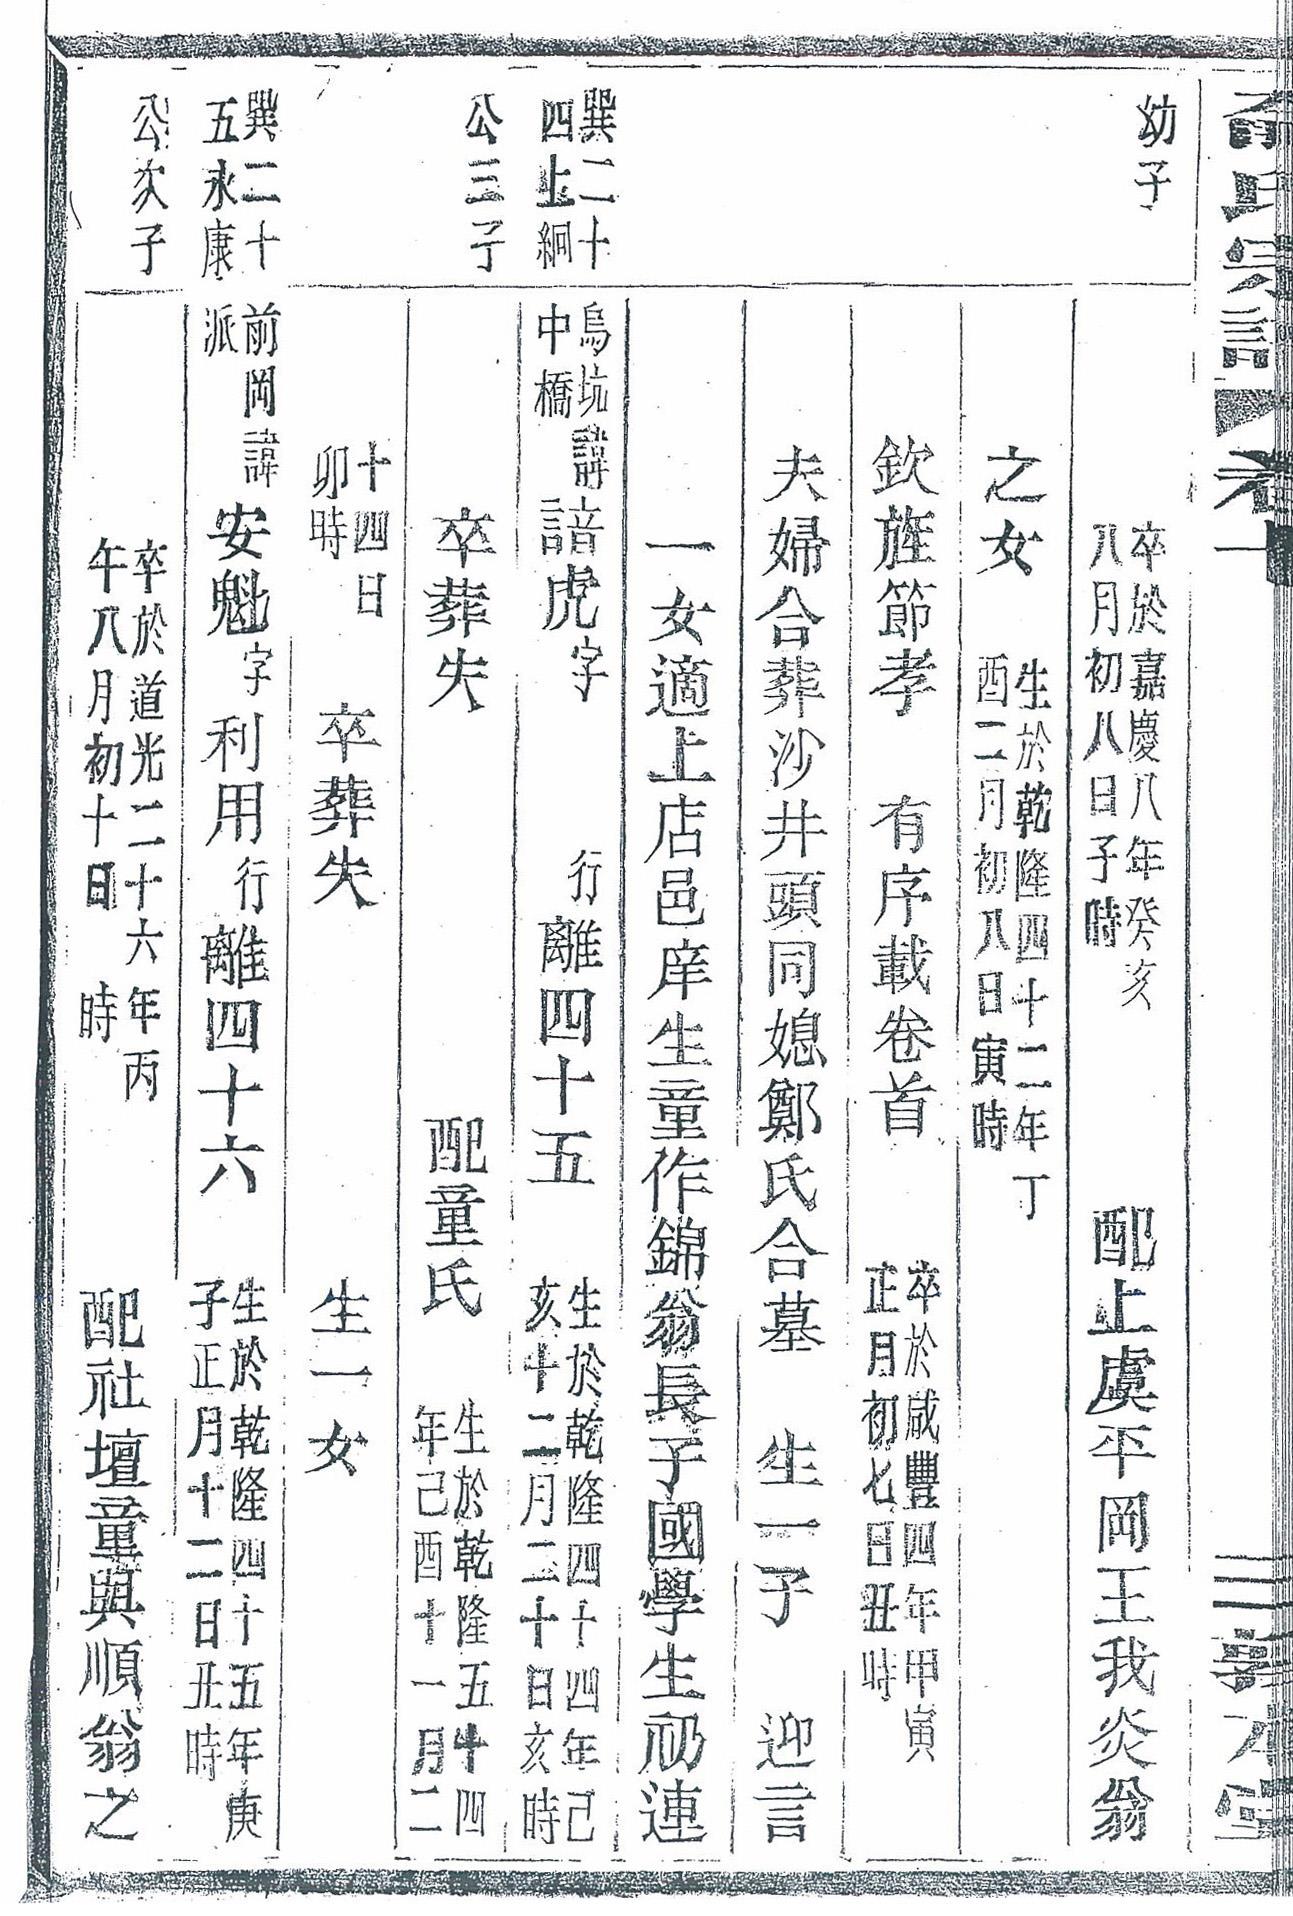 氏宗譜 卷十 敦本堂
幼子
卒於嘉慶八年癸亥
八月初八日子時
配上虞平岡王我炎翁
之女
生於乾隆四十二年丁
酉二月初八日寅時
欽旌節孝 有序載卷首
卒於咸豐四年甲寅
正月初七日丑時
夫婦合葬沙井頭同媳鄭氏合墓 生一子 迎言
一女適上店邑庠生童作錦翁長子國學生礽連
巽二十
四上絅
烏坑諱
中橋
諳虎字
行離四十五
生於乾隆四十四年己
亥十二月二十日亥時
公三子
卒葬失
配童氏
生於乾隆五十四
年己酉十一月二
十四日
卯時
卒葬失
生一女
巽二十
五永康
前岡諱
派
安魁字利用行離四十六
生於乾隆四十五年庚
子正月十二日丑時
公次子
卒於道光二十六年丙
午八月初十日 時
配社壇童與順翁之